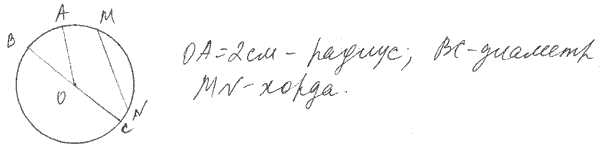 A M
B
O
N
C
OA=2см - радиус; BC-диаметр
MN-хорда.